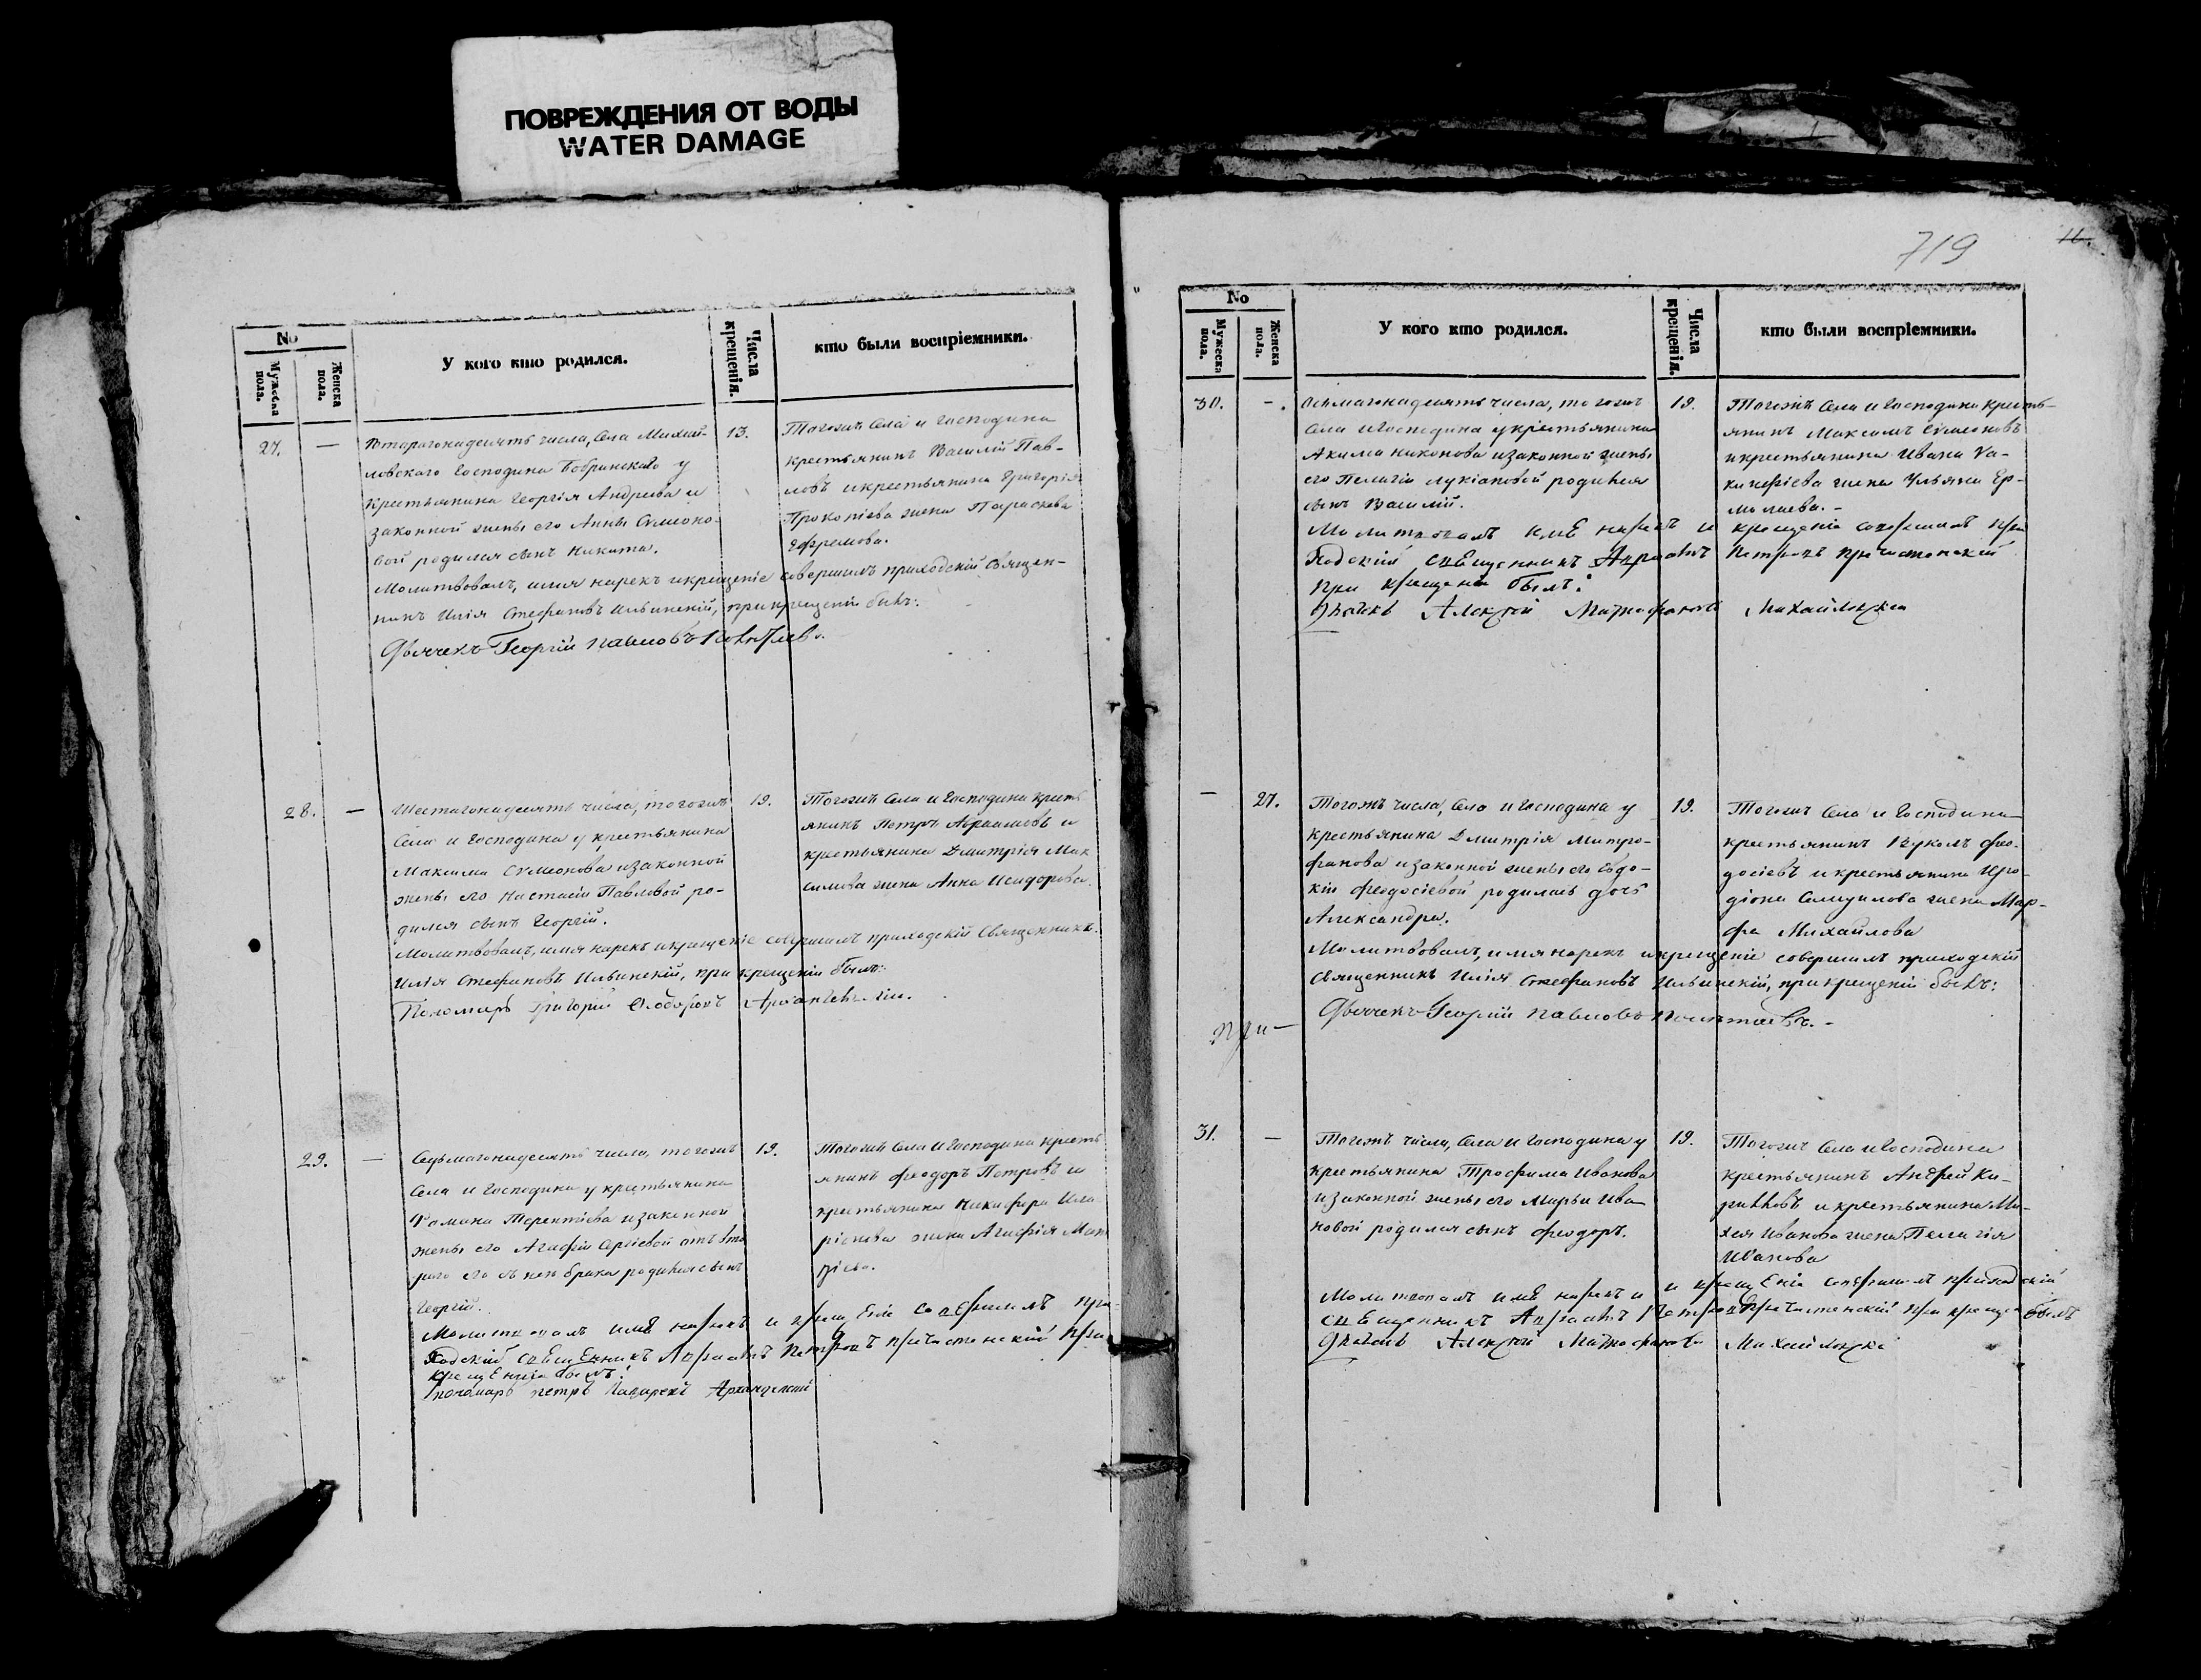 ПОВРЕЖДЕНИЯ ОТ ВОДЫ
WATER DAMAGE
No
Мужеска пола.
Женска пола.
У кого кто родился.
Числа крещенія.
кто были воспріемники.
27. —
Втарагонадесять числа, Села Михай-
ловскаго Господина Бобринскаго у
крестьянина Георгія Андреева и
законной жены его Анны Сумеоно-
вой родился сынъ Никита.
13.
Тогожъ Села и Господина
крестьянинъ Василій Пав-
ловъ и крестьянина Григорія
Прокопіева жена Параскева
Ефремова.
Молитвовалъ, имя нарекъ и крещеніе совершилъ приходскій Священ-
никъ Илія Стефановъ Ильинскій, при крещеніи былъ:
Дьячекъ Георгій Павловъ
28. —
Шестагонадесять числа, тогожъ
Села и Господина у крестьянина
Максима Сумеонова и законной
жены его Настасіи Павловой ро-
дился сынъ Георгій.
19.
Тогожъ Села и Господина кресть
янинъ Петръ Авраамовъ и
крестьянина Дмитрія Мак
симова жена Анна Исидорова.
Молитвовалъ, имя нарекъ и крещеніе совершилъ приходскій Священникъ
Илія Стефановъ Ильинскій, при крещеніи былъ:
Пономарь Григорій Ѳеодоровъ
29. —
Седьмагонадесять числа, тогожъ
Села и Господина у крестьянина
Романа Терентіева и законной
жены его Агафіи Сергіевой отъ вто
раго его съ нею брака родился сынъ
Георгій.
19.
Тогожъ Села и Господина кресть
янинъ Феодоръ Петровъ и
крестьянина Никифора Ила
ріонова жена Агафія Мат
ѳіева.
Молитвовалъ имѣ нарекъ и крещеніе совершилъ при-
ходскій свѣщенникъ Авраамъ Петровъ Пречистенскій при
крещеніи былъ:
пономарь Петръ Архангельскій
719
16.
No
Мужеска пола.
Женска пола.
У кого кто родился.
Числа крещенія.
кто были воспріемники.
30. —
Осьмагонадесять числа, тогожъ
Села и Господина у крестьянина
Акима Никонова и законной жены
его Пелагіи Лукіановой родился
сынъ Василій.
19.
Тогожъ Села и Господина кресть-
янинъ Максимъ Сумеоновъ
и крестьянина Ивана
жена Ульяна Ер-
молаева. —
Молитвовалъ имѣ нарекъ и крещеніе совершилъ при
ходскій свѣщенникъ Авраамъ Петровъ Пречистенскій
при крещеніи былъ:
Дьячекъ Алексѣй Митрофановъ
— 27.
Тогожъ числа, Села и Господина у
крестьянина Дмитрія Митро-
фанова и законной жены его Евдо-
кіи Феодосіевой родилась дочь
Александра.
19.
Тогожъ Села и Господина
крестьянинъ Вуколъ Фео-
досіевъ и крестьянина Иро-
діона жена Мар-
фа Михайлова
Молитвовалъ, имя нарекъ и крещеніе совершилъ приходскій
Священникъ Илія Стефановъ Ильинскій, при крещеніи былъ:
Дьячекъ Георгій Павловъ
31. —
Тогожъ числа, Села и Господина у
крестьянина Трофима Иванова
и законной жены его Марьи Ива
новой родился сынъ Феодоръ.
19.
Тогожъ Села и Господина
крестьянинъ Андрей Ки-
риловъ и крестьянина Ми-
хея Иванова жена Пелагія
Иванова
Молитвовалъ имѣ нарекъ и крещеніе совершилъ приходскій
свѣщенникъ Авраамъ Петровъ Пречистенскій при крещеніи былъ
Дьячекъ Алексѣй Митрофановъ